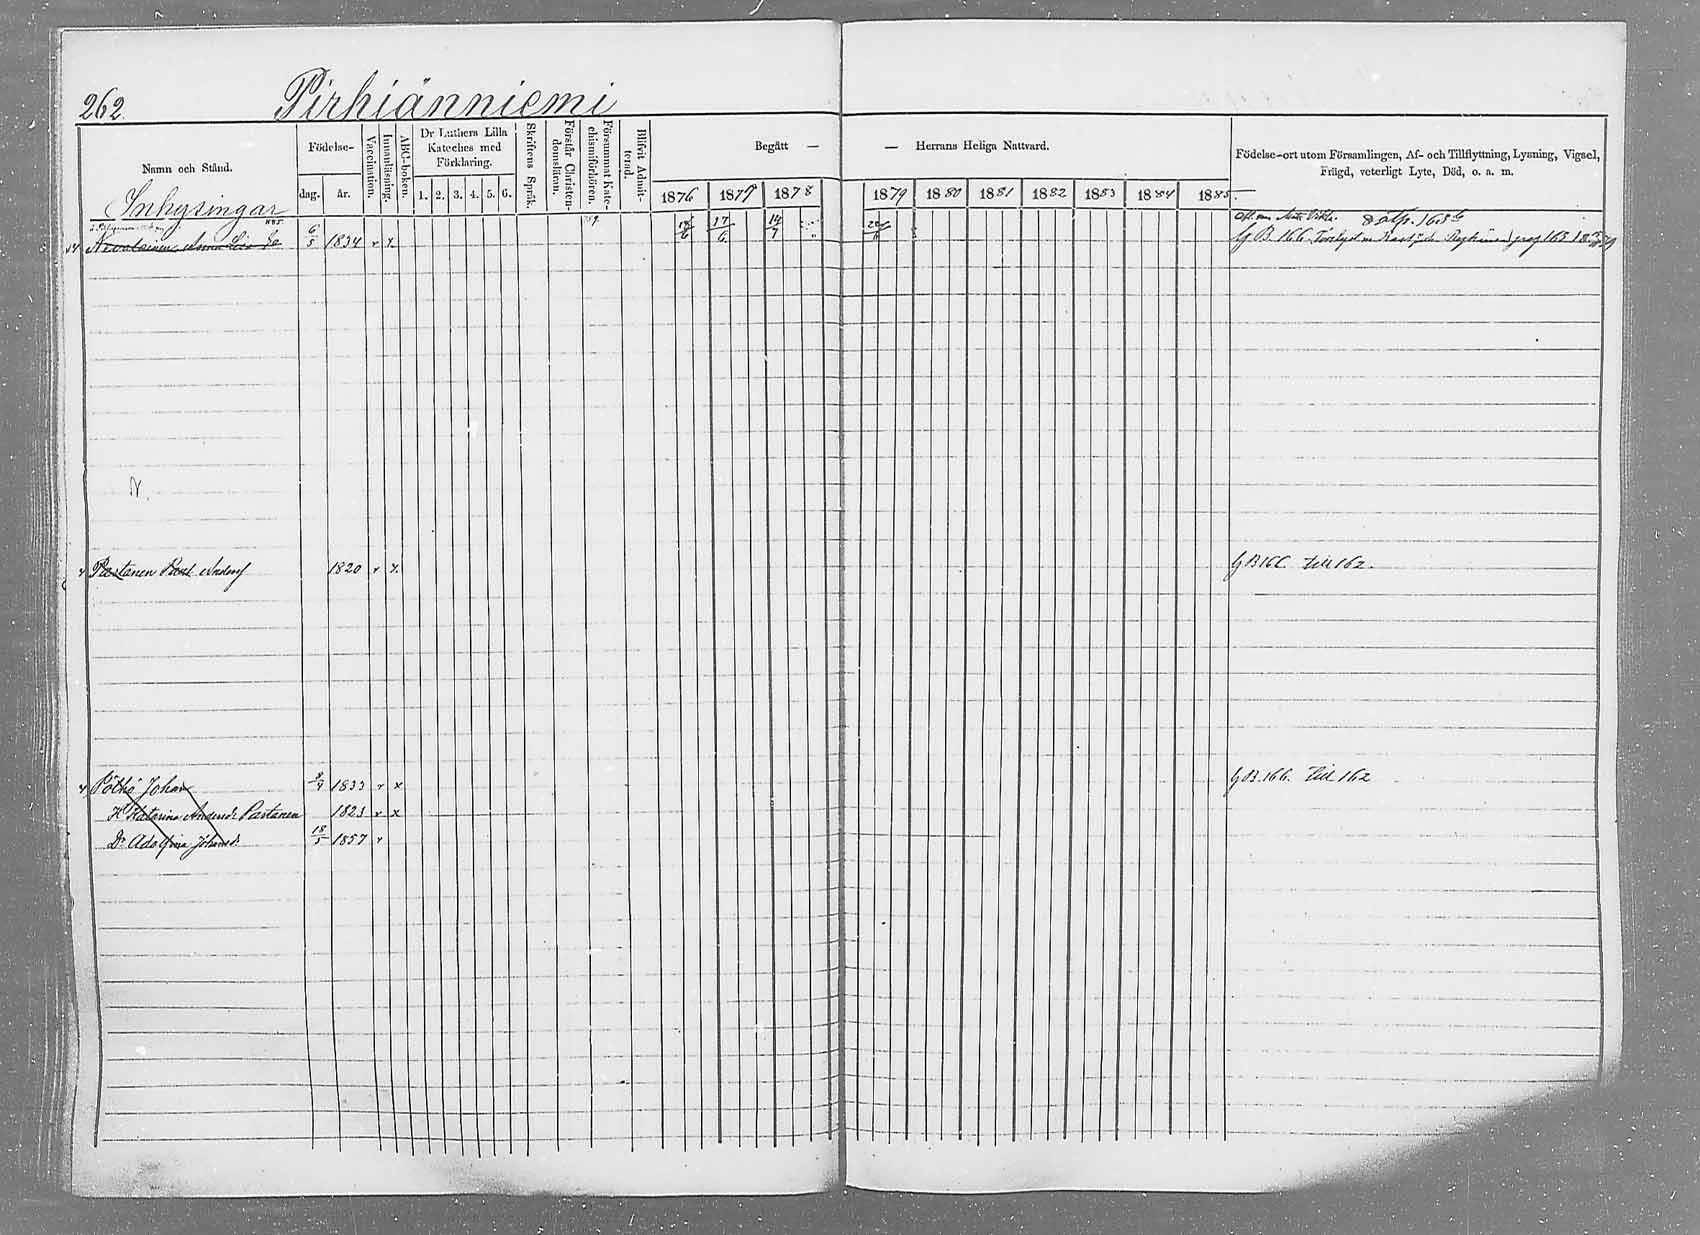 262.
Pirhiänniemi
Namn och Stånd.
Födelse-
dag.
år.
Vaccination.
Innanläsning.
ABC-boken.
Dr Luthers Lilla
Kateches med
Förklaring.
1. 2. 3. 4. 5. 6.
Skriftens Språk.
Förstår Christen-
domsläran.
Försummat Kate-
chismiförhören.
Blifvit Admit-
terad.
Begått —
— Herrans Heliga Nattvard.
1876 1877 1878 1879 1880 1881 1882 1883 1884 1885
Födelse-ort utom Församlingen, Af- och Tillflyttning, Lysning, Vigsel,
Frägd, veterligt Lyte, Död, o. a. m.
Inhysingar
Anna 6/5 1834 v x 17/6 14/7 G B 166.
N.
Partanen Paul Andersf 1820 v x. G B 166 till 162.
Pölhö Johan 8/9 1833 v x G B. 166. till 162
H. Katarina Andersdr Partanen 1823 v x
Dr Adolfina Johansdr 18/5 1857 v